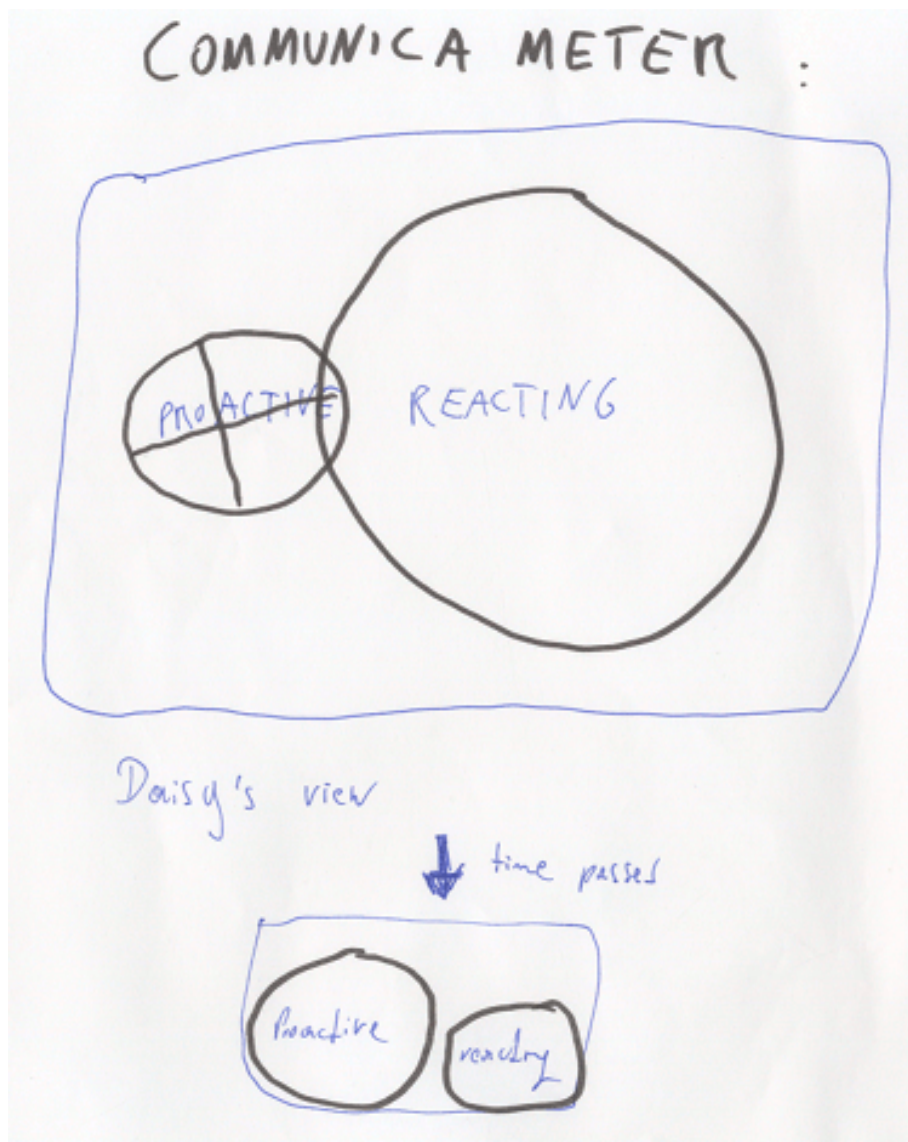 COMMUNICA METER :
PROACTIVE
REACTING
Daisy's view
time passes
Proactive
reacting